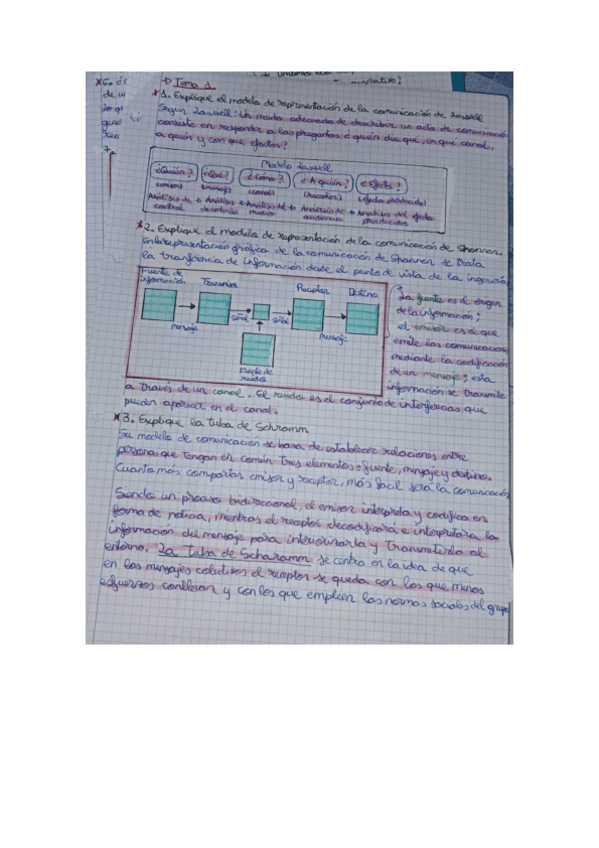 → Tema 1.
*1. Explique el modelo de representación de la comunicación de Laswell
Según Laswell: Un modo adecuado de describir un acto de comunicación
consiste en responder a las preguntas ¿quién dice qué, en qué canal,
a quién y con que efectos?
Modelo Laswell
¿Quién? ¿Qué? ¿Cómo? ¿A quién? ¿Efecto?
(emisor) (mensaje) (canal) (receptor) (efecto producido)
Análisis de + Análisis + Análisis del + Análisis de + Análisis del efecto
control contenido medio audiencia producidos
*2. Explique el modelo de representación de la comunicación de Shannon.
En la representación gráfica de la comunicación de Shannon se trata
la transferencia de información desde el punto de vista de la ingeniería
Fuente de
información Transmisor Receptor Destino
señal señal
mensaje mensaje
Fuente de
ruidos
La fuente es el origen
de la información;
el emisor es el que
emite las comunicaciones
mediante la codificación
de un mensaje; esta
información se transmite
a través de un canal. El ruido es el conjunto de interferencias que
pueden aparecer en el canal.
*3. Explique la tuba de Schramm
Su modelo de comunicación se basa de establecer relaciones entre
personas que tengan en común tres elementos: fuente, mensaje y destino.
Cuanto más compartan emisor y receptor, más fácil será la comunicación
Siendo un proceso bidireccional, el emisor interpreta y codifica en
forma de noticia, mientras el receptor decodificará e interpretara la
información del mensaje para interiorizarla y transmitirla al
entorno. La tuba de Scharamm se centra en la idea de que
en los mensajes colectivos el receptor se queda con los que menos
esfuerzos conllevan y con los que empleen las normas sociales del grupo